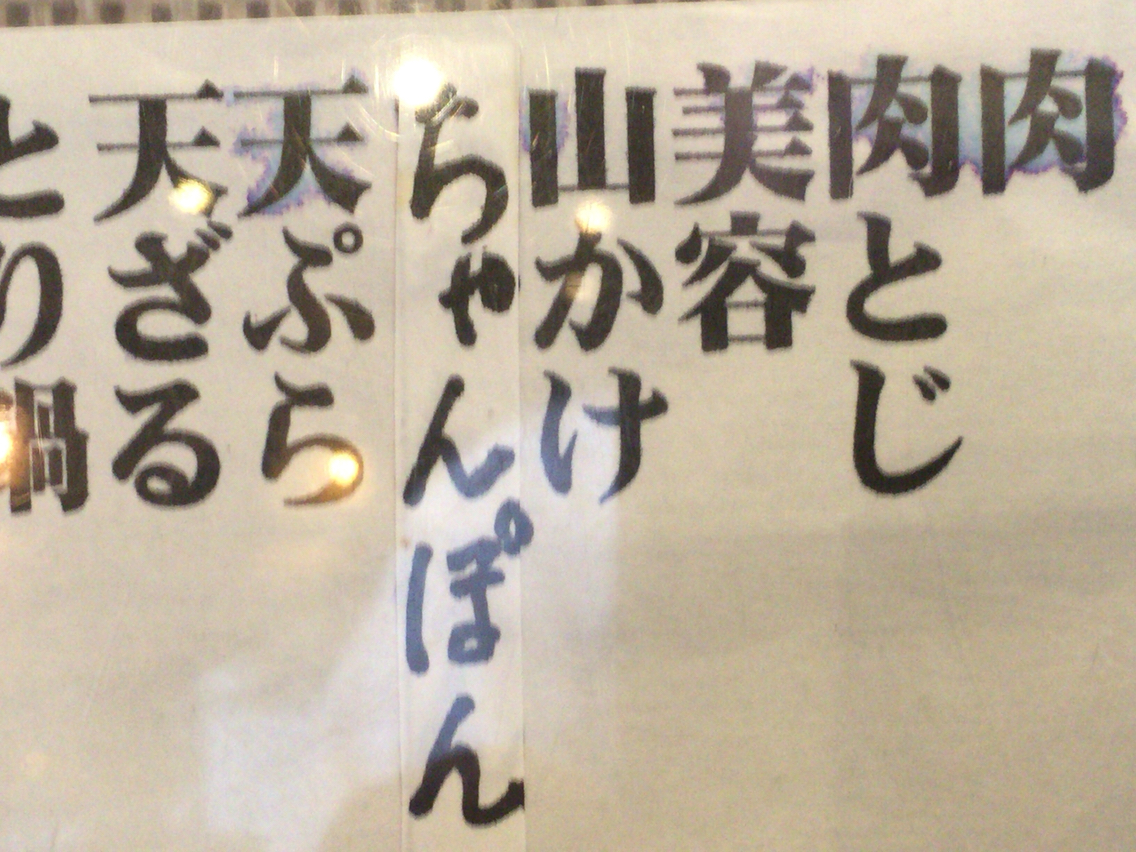 肉
肉とじ
美容
山かけ
ちゃんぽん
天ぷら
天ざる
とり鍋